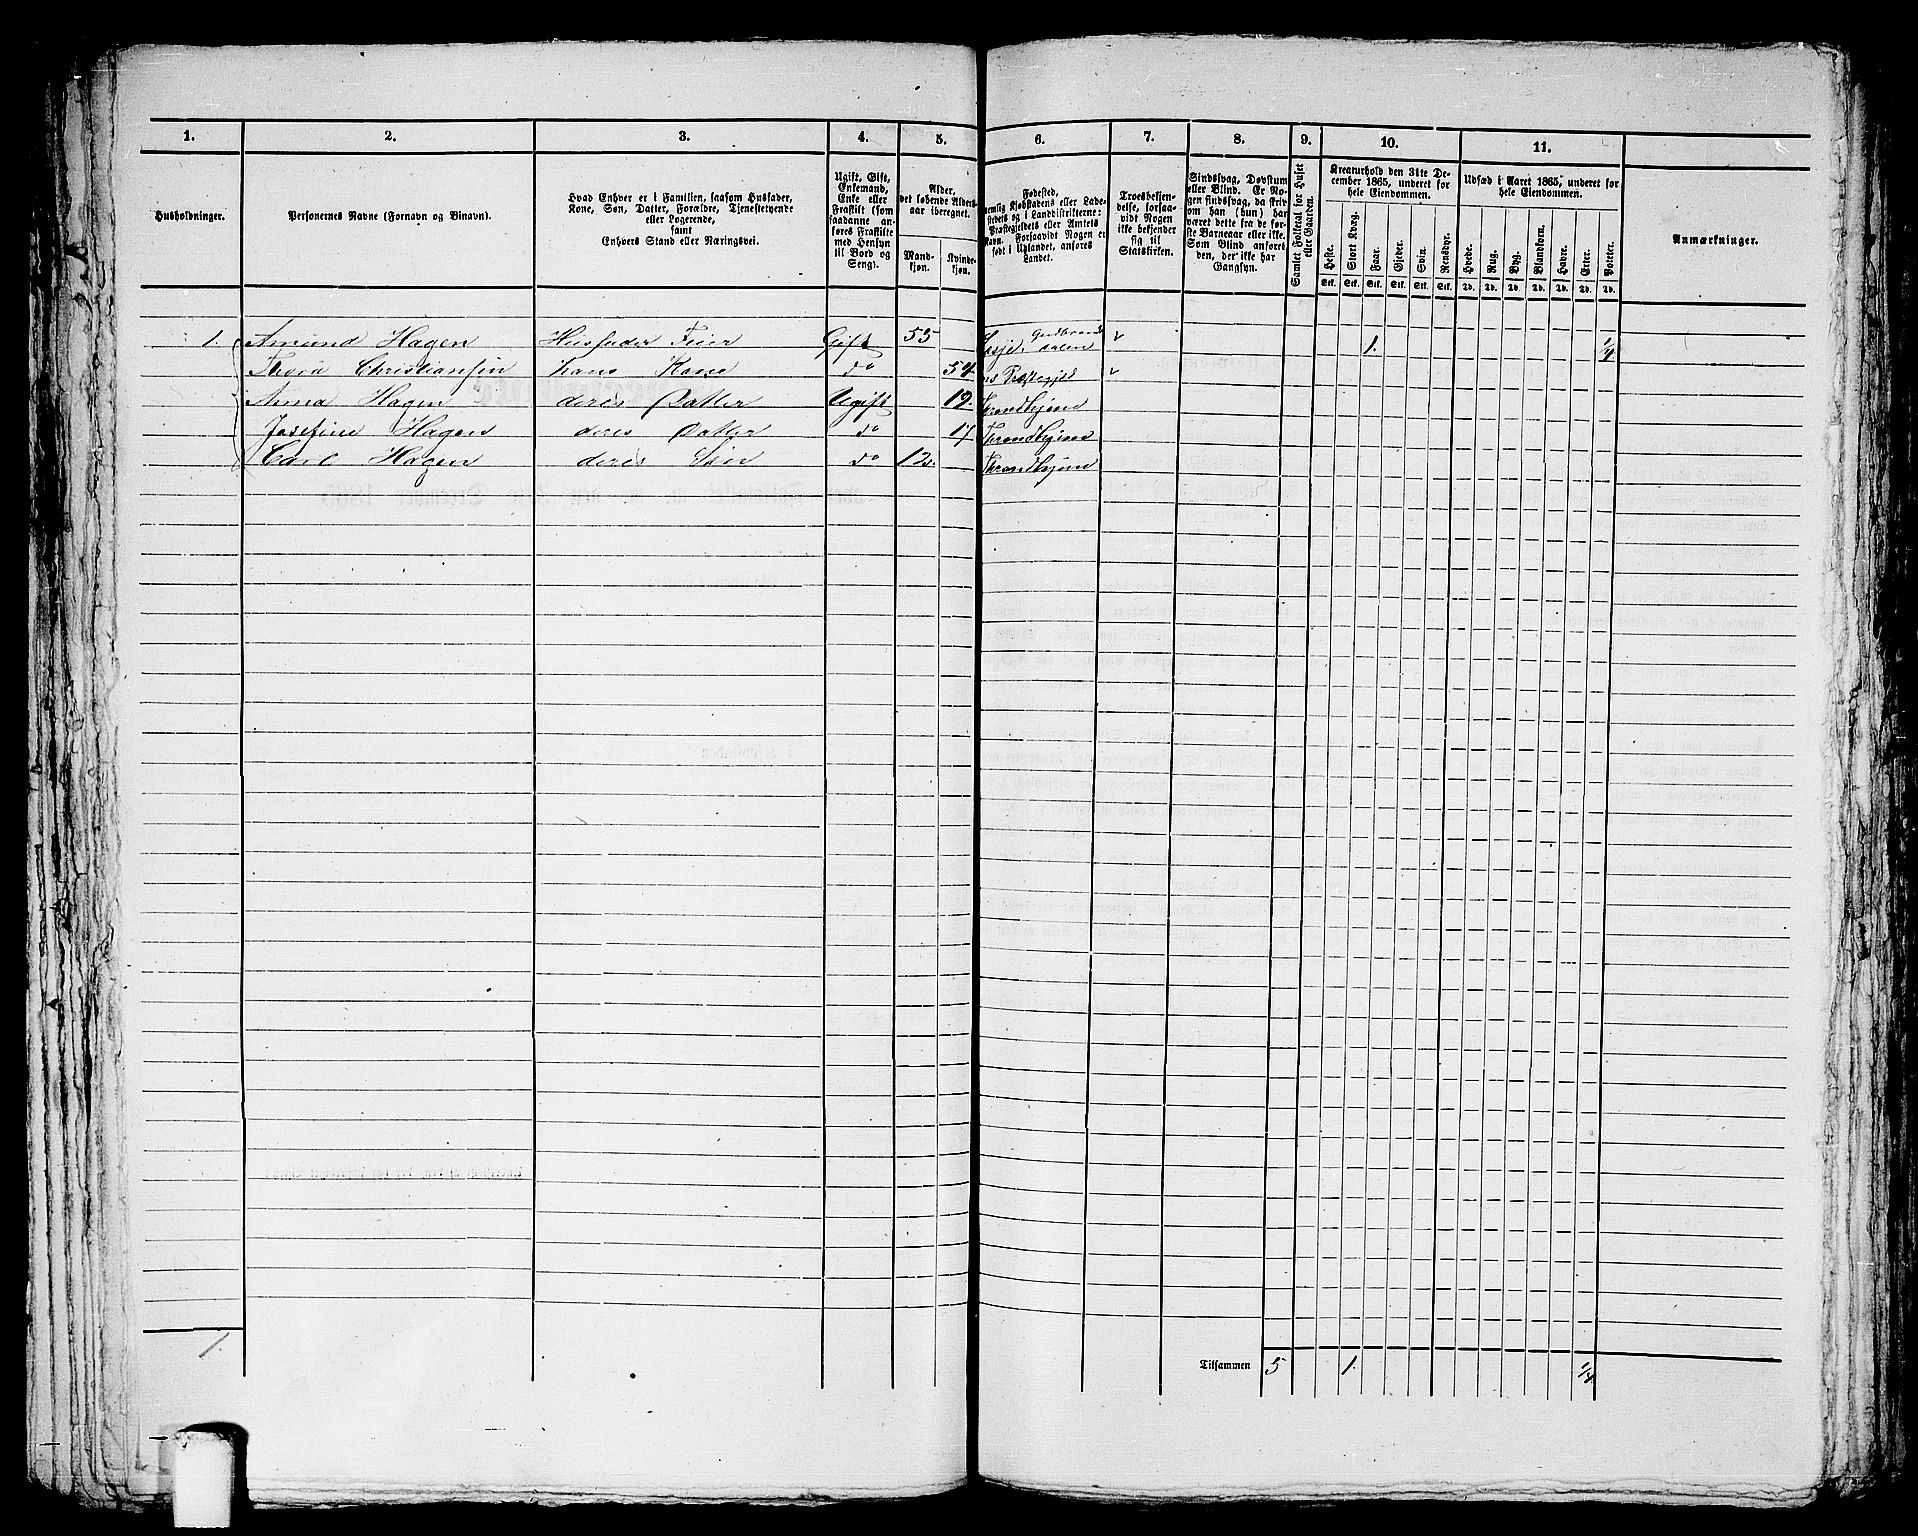 1. 2. 3. 4. 5. 6. 7. 8. 9. 10. 11.
Husholdninger.
Personernes Navne (Fornavn og Binavn).
Hvad Enhver er i Familien, saasom Husfader,
Kone, Søn, Datter, Forældre, Tjenestetyende
eller Logerende,
samt
Enhvers Stand eller Næringsvei.
Ugift, Gift,
Enkemand,
Enke eller
Fraskilt (som
saadanne an-
føres Fraskilte
med Hensyn
til Bord og
Seng).
Alder,
det løbende Alders-
aar iberegnet.
Mand-
kjøn.
Kvinde-
kjøn.
Fødested,
nemlig Kjøbstadens eller Lade-
stedets og i Landdistrikterne:
Præstegjeldets eller Amtets
Navn. Forsaavidt Nogen er
født i Udlandet, anføres
Landet.
Troesbekjen-
delse, forsaa-
vidt Nogen
ikke bekjender
sig til
Statskirken.
Sindssvag, Døvstum
eller Blind. Er No-
gen sindssvag, da skriv
om han (hun) har
været dette fra de før-
ste Barneaar eller ikke.
Som Blind anføres
den, der ikke har
Gangsyn.
Samlet Folketal for Huset
eller Gaarden.
Kreaturhold den 31te De-
cember 1865, underet for
hele Eiendommen.
Heste. Stort Kvæg. Faar. Gjeder. Svin. Rensdyr.
Stk. Stk. Stk. Stk. Stk. Stk.
Udsæd i Aaret 1865, underet for
hele Eiendommen.
Hvede. Rug. Byg. Blandkorn. Havre. Erter. Poteter.
Td. Td. Td. Td. Td. Td. Td.
Anmærkninger.
1. Amund Hagen Husfader Feier Gift 53 Lesje, Gudbrands 1. 1/4
dalen
Thora Christiansen hans Kone do 54 Præstegjeld
Anna Hagen deres Datter Ugift 19. Throndhjem
Josefine Hagen deres Datter do 17 Throndhjem
Carl Hagen deres Søn do 12. Throndhjem
1.
Tilsammen 5 1. 1/4